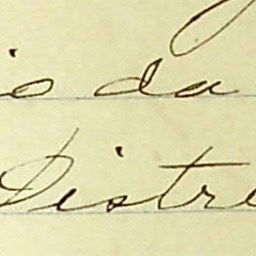 is da
Distre